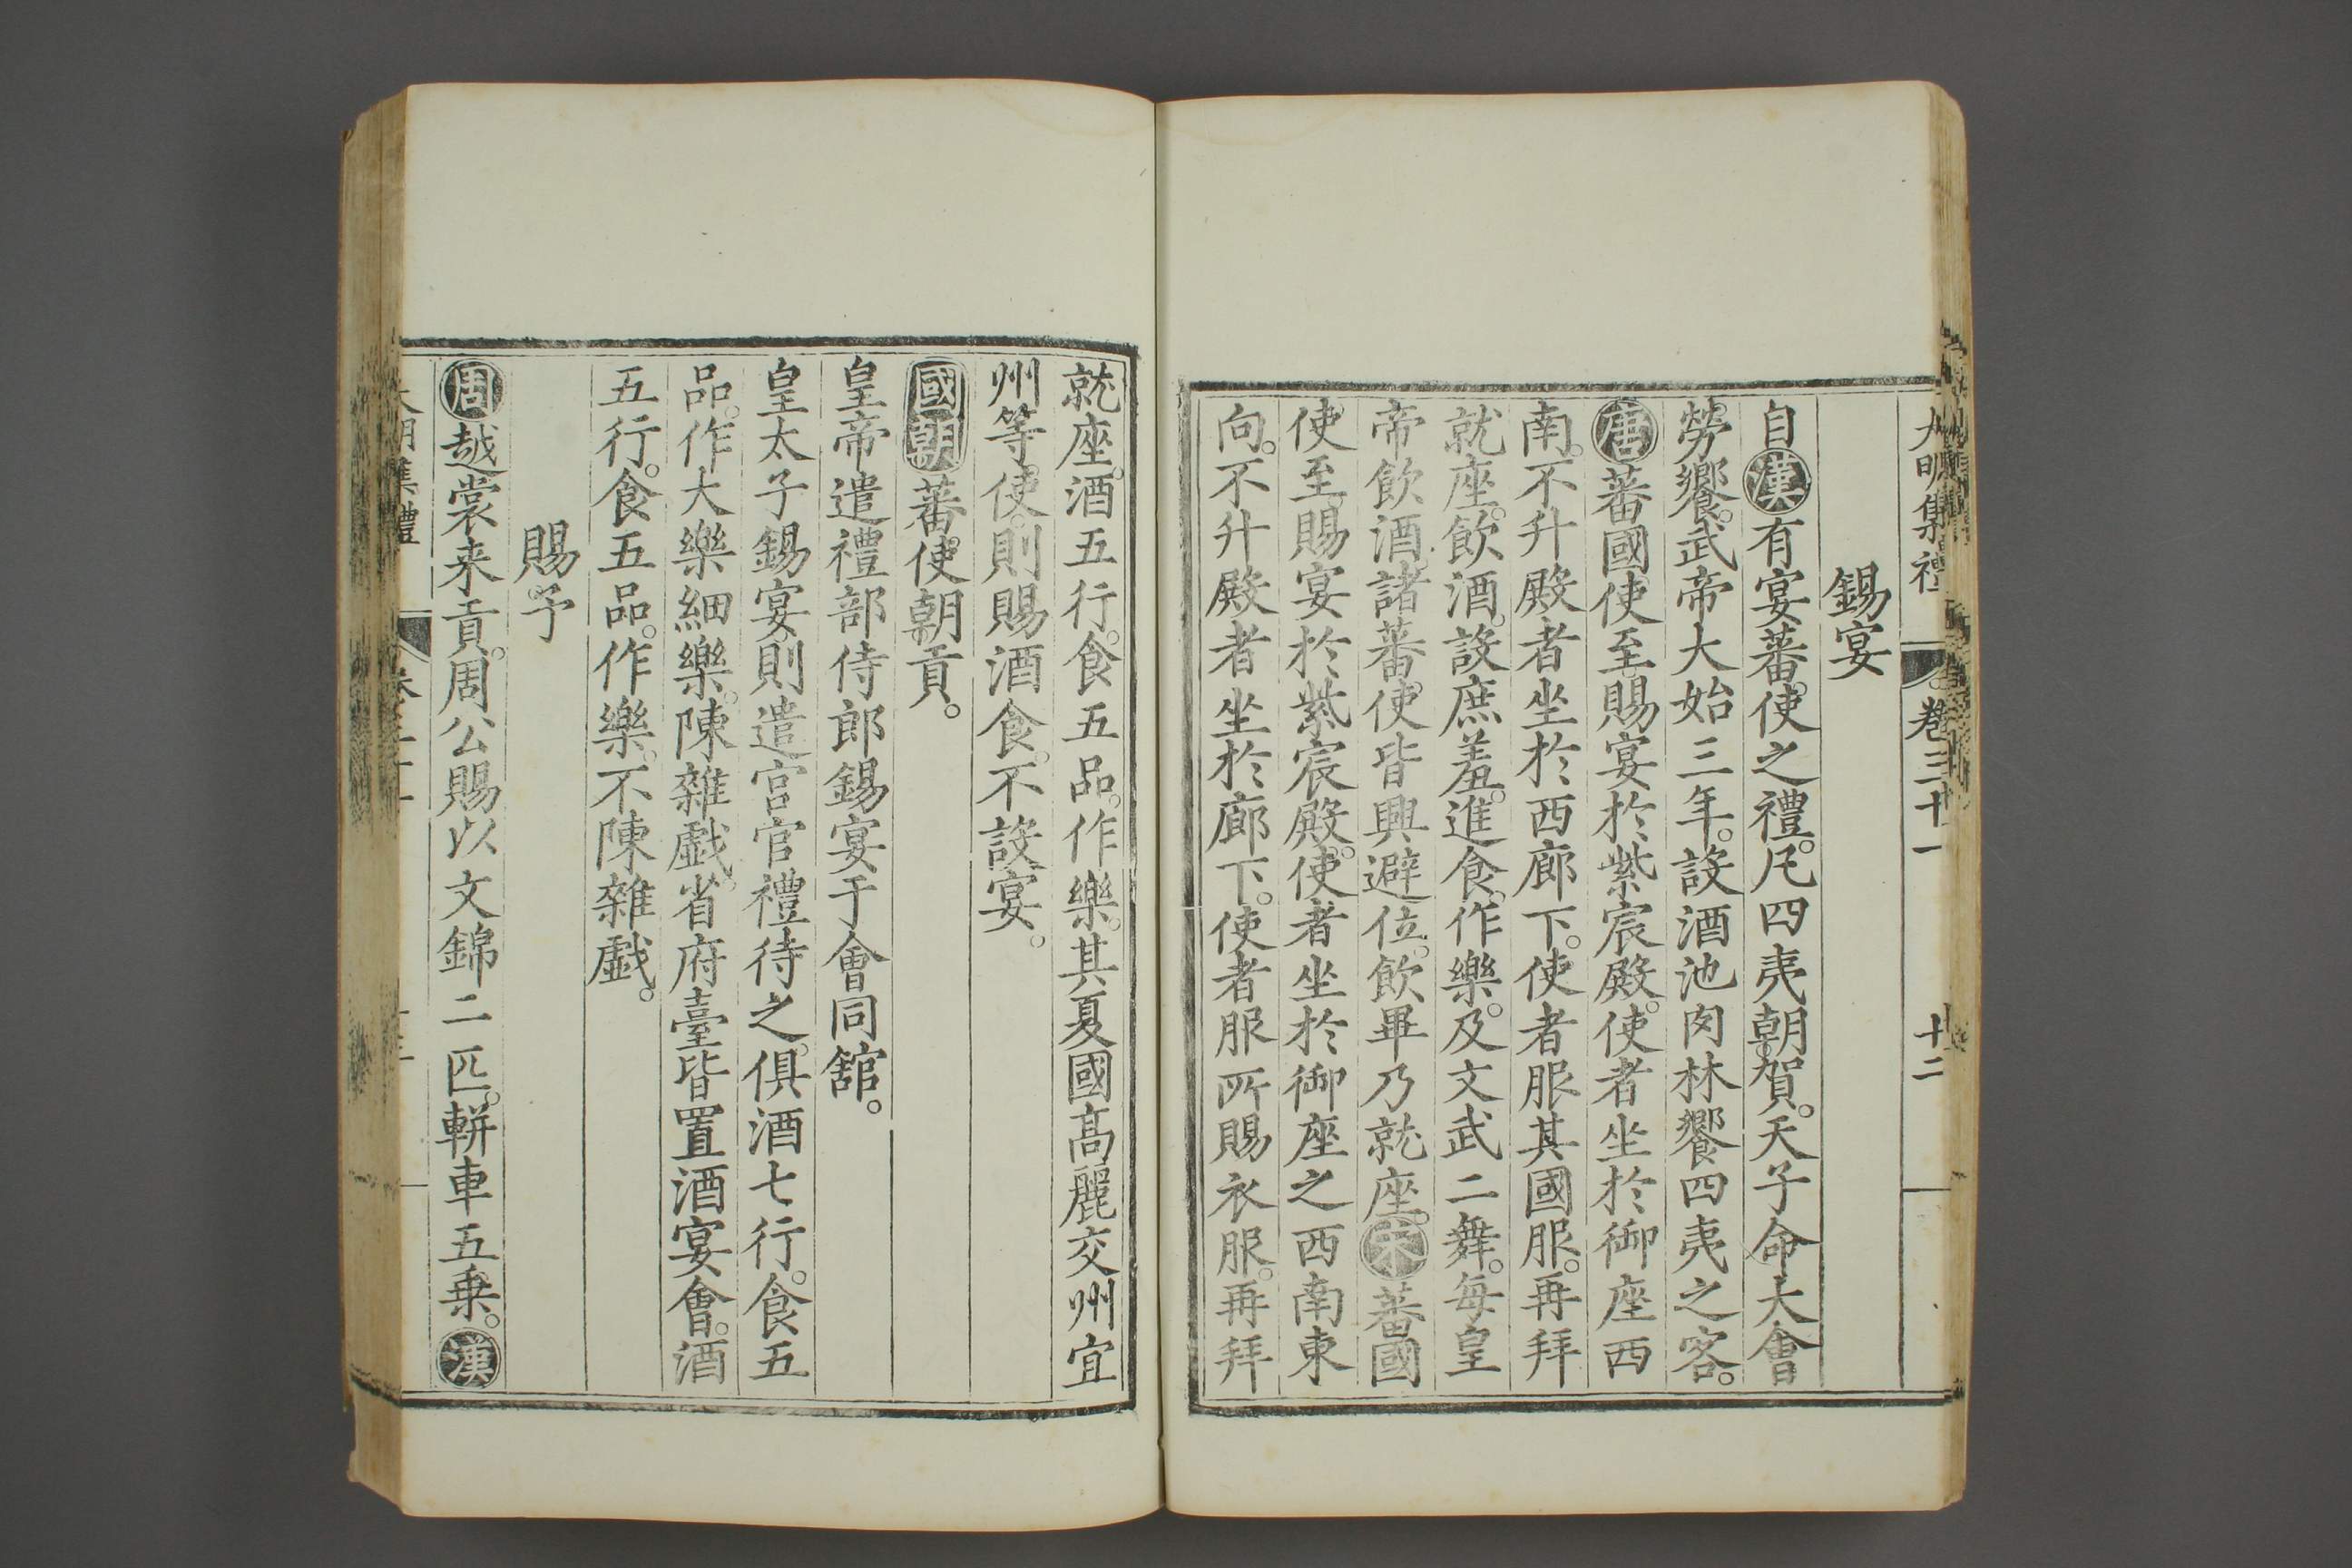 大明集禮 卷三十一 十二
錫宴
自漢有宴蕃使之禮。凡四夷朝賀。天子命大會
勞饗。武帝大始三年。設酒池肉林饗四夷之客。
唐蕃國使至。賜宴於紫宸殿。使者坐於御座西
南。不升殿者坐於西廊下。使者服其國服。再拜
就座。飲酒。設庶羞。進食。作樂。及文武二舞。每皇
帝飲酒。諸蕃使皆興避位。飲畢乃就座。宋蕃國
使至。賜宴於紫宸殿。使者坐於御座之西南東
向。不升殿者坐於廊下。使者服所賜衣服。再拜
就座。酒五行。食五品。作樂。其夏國高麗交州宜
州等使。則賜酒食。不設宴。
國朝蕃使朝貢。
皇帝遣禮部侍郎錫宴于會同館。
皇太子錫宴則遣宮官禮待之。俱酒七行。食五
品。作大樂細樂。陳雜戲。省府臺皆置酒宴會。酒
五行。食五品。作樂。不陳雜戲。
賜予
周越裳来貢。周公賜以文錦二匹。軿車五乗。漢
大明集禮 卷三十一